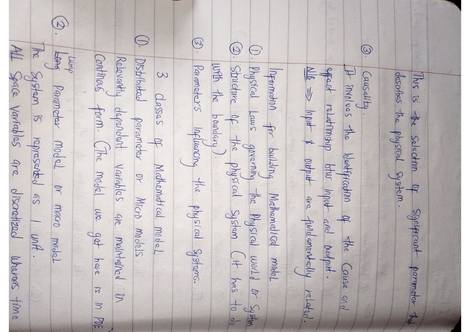 This is the selection of significant parameter
describes the physical system.
③ Causality
It involves the Identification of the Cause and
effect relationship btw input and output.
NB ⇒ Input & output are fundamentally related.
Information for building Mathematical model
①. Physical Laws governing the Physical world or System
②. Structure of the physical System (it has to do
with the boundary).
③. Parameters Influencing the physical Systems.
3 classes of Mathematical model
①. Distributed parameter or Micro models
Relevantly dependent variables are maintained in
Continous form. (The model we get here is in PDE
②. Lump Parameter model or macro model
The System is represented as 1 unit.
All Space variables are discretized whereas time